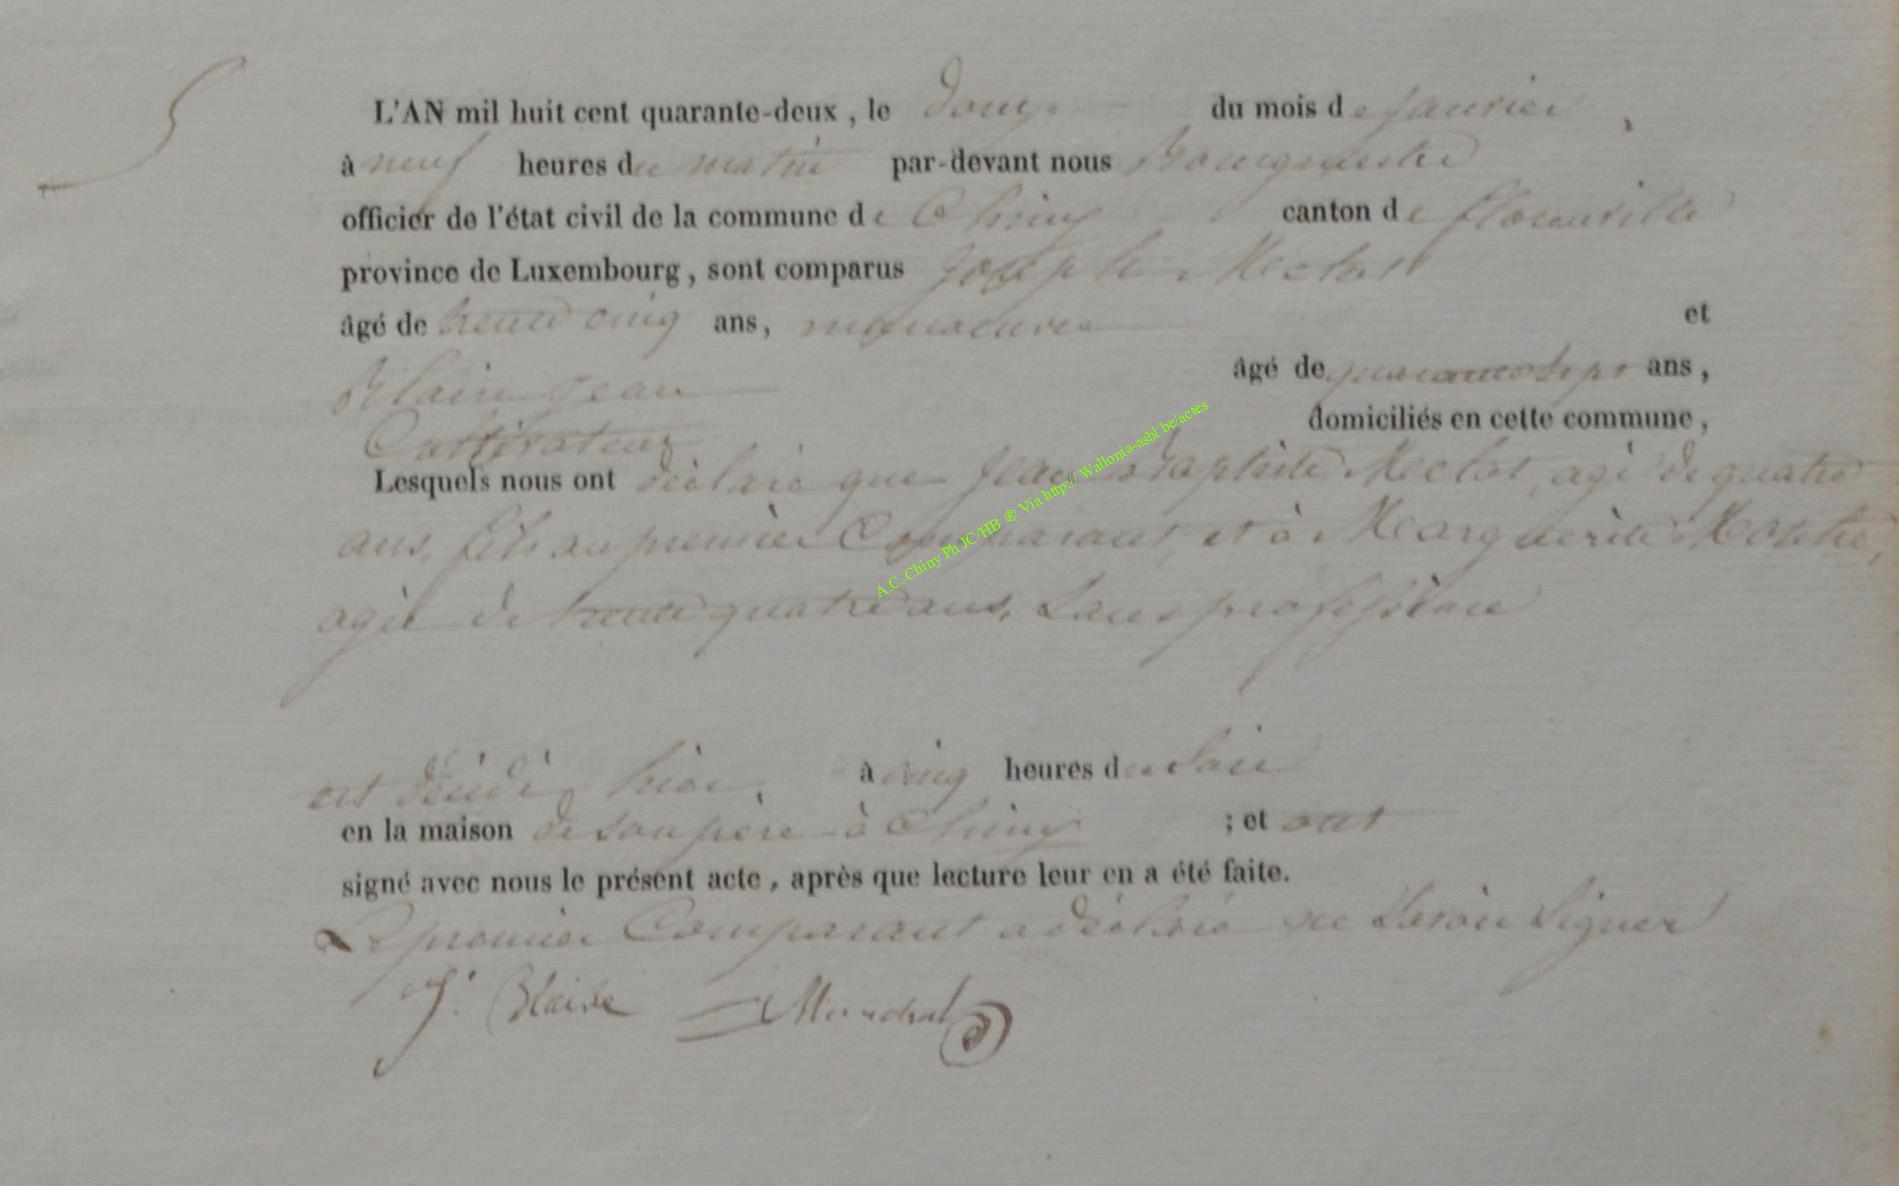 5
L'AN mil huit cent quarante-deux, le douze du mois de Janvier,
à neuf heures du matin par-devant nous Bourgmestre
officier de l'état civil de la commune de Chiny canton de florenville
province de Luxembourg, sont comparus Joseph Meclot
âgé de trente cinq ans, manoeuvre et
Blaise Jean âgé de quarante sept ans,
Cultivateur domiciliés en cette commune,
Lesquels nous ont déclaré que Jean Baptiste Meclot, agé de quatre
ans, fils au premier Comparant, et à Marguerite
agée de trente quatre ans, Sans profession
est décédé hier, à cinq heures du Soir
en la maison de son père à Chiny ; et ont
signé avec nous le présent acte, après que lecture leur en a été faite.
Le premier Comparant a déclaré ne Savoir Signer
J. Blaise Maréchal
A.C. Chiny Ph JC/HB ® Via http://Wallonia-asbl.be/actes